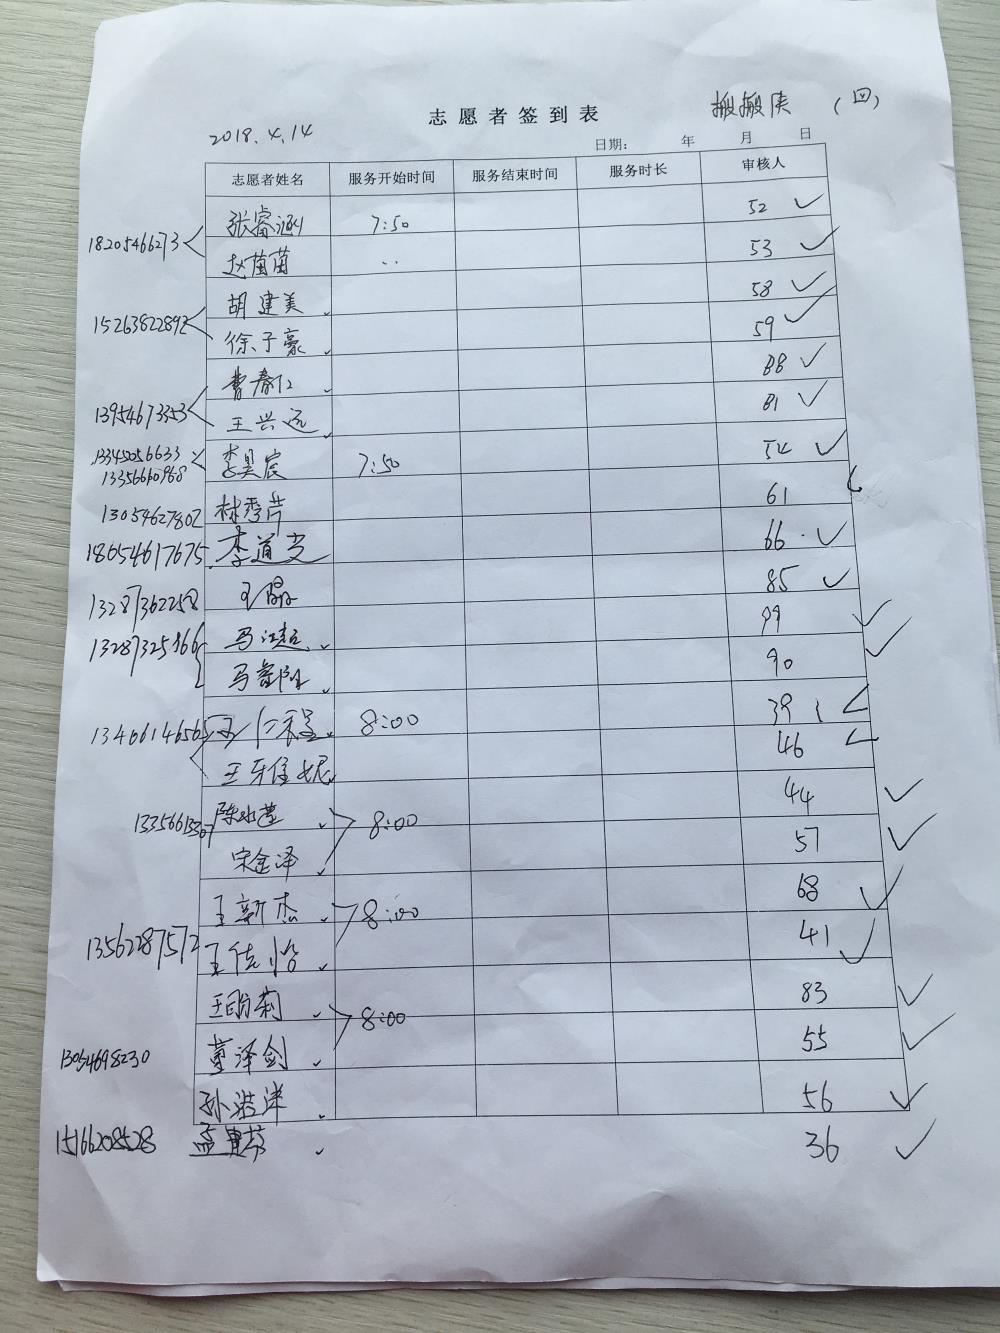 志愿者签到表
搬搬侠 (四)
2018.4.14
日期： 年 月 日
志愿者姓名 服务开始时间 服务结束时间 服务时长 审核人
18205466273 张睿涵 7:50 52 ✓
赵菌菌 ·· 53 ✓
胡建美 58 ✓
15263822892 徐子豪 59 ✓
曹春仁 88 ✓
13954673353 王兴远 81 ✓
13345056633 李昊宸 7:50 54 ✓
13356660968
13054627802 林秀芹 61
18654617675 李道光 66 ✓
13287362258 王晶 85 ✓
13287325166 马江超 99 ✓
马睿阳 90 ✓
1340614656 王仁程 8:00 39 ✓
王牙佳妮 46 ✓
13356613307 陈冰莲 8:00 44 ✓
宋金泽 57 ✓
王新杰 8:00 68 ✓
13562287572 王佳怡 41 ✓
王明菊 8:00 83 ✓
13054698230 董泽剑 55 ✓
孙浩洋 56 ✓
15166208528 孟 36 ✓